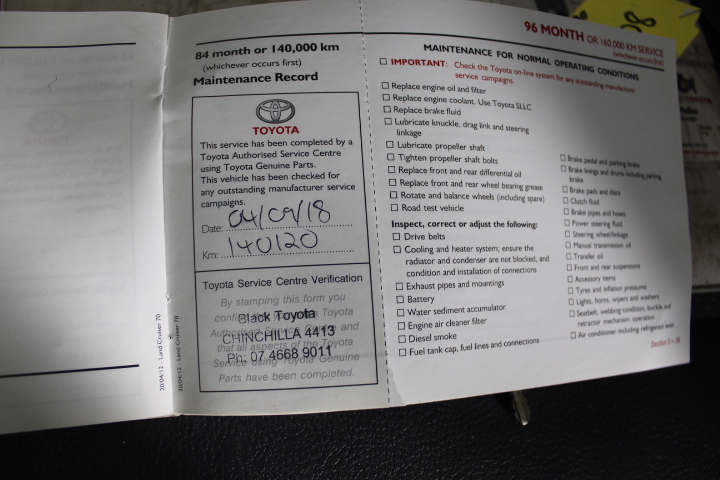 84 month or 140,000 km
(whichever occurs first)
Maintenance Record
TOYOTA
This service has been completed by a
Toyota Authorised Service Centre
using Toyota Genuine Parts.
This vehicle has been checked for
any outstanding manufacturer service
campaigns.
Date: 04/09/18
Km: 140120
Toyota Service Centre Verification
By stamping this form you
confirm Toyota
Authorised and
that all aspects of the Toyota
Service using Toyota Genuine
Parts have been completed.
Black Toyota
CHINCHILLA 4413
Ph: 07 4668 9011
20/04/12 - Land Cruiser 70
20/04/12 - Land Cruiser 70
96 MONTH OR 160,000 KM SERVICE
(whichever occurs first)
MAINTENANCE FOR NORMAL OPERATING CONDITIONS
IMPORTANT: Check the Toyota on-line system for any outstanding manufacturer
service campaigns.
Replace engine oil and filter
Replace engine coolant. Use Toyota SLLC
Replace brake fluid
Lubricate knuckle, drag link and steering
linkage
Lubricate propeller shaft
Tighten propeller shaft bolts
Replace front and rear differential oil
Replace front and rear wheel bearing grease
Rotate and balance wheels (including spare)
Road test vehicle
Inspect, correct or adjust the following:
Drive belts
Cooling and heater system; ensure the
radiator and condenser are not blocked, and
condition and installation of connections
Exhaust pipes and mountings
Battery
Water sediment accumulator
Engine air cleaner filter
Diesel smoke
Fuel tank cap, fuel lines and connections
Brake pedal and parking brake
Brake linings and drums including parking
brake
Brake pads and discs
Clutch fluid
Brake pipes and hoses
Power steering fluid
Steering wheel/linkage
Manual transmission oil
Transfer oil
Front and rear suspensions
Accessory items
Tyres and inflation pressures
Lights, horns, wipers and washers
Seatbelt, webbing condition, buckle and
retractor mechanism operation
Air conditioner including refrigerant level